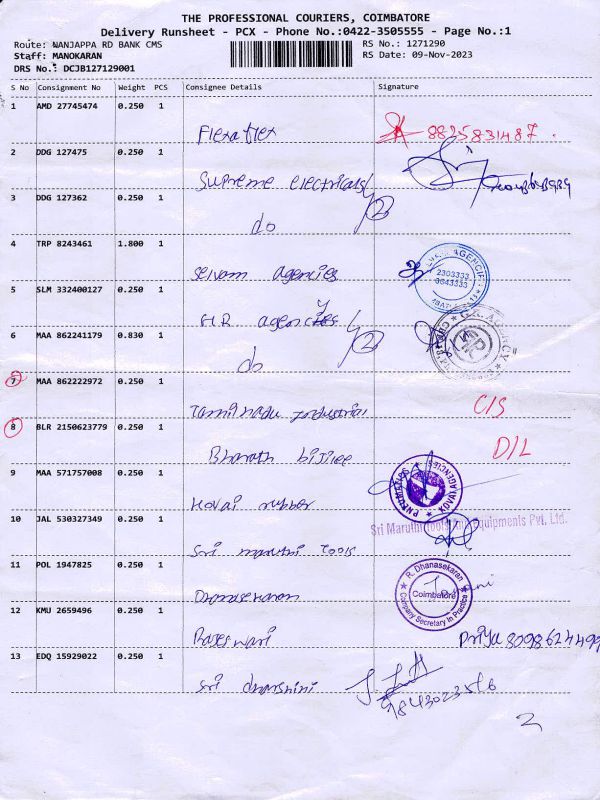 THE PROFESSIONAL COURIERS, COIMBATORE
Delivery Runsheet - PCX - Phone No.:0422-3505555 - Page No.:1
Route: NANJAPPA RD BANK CMS
RS No.: 1271290
Staff: MANOKARAN
RS Date: 09-Nov-2023
DRS No.: DCJB127129001
S No Consignment No Weight PCS Consignee Details Signature
1 AMD 27745474 0.250 1
Flexatlex 8825831487.
2 DDG 127475 0.250 1
Supreme electricals
3 DDG 127362 0.250 1
do 2
4 TRP 8243461 1.800 1
Selvam agencies
2303333
5 SLM 332400127 0.250 1
G.R. agencies
6 MAA 862241179 0.830 1
do 2
7 MAA 862222972 0.250 1
Tamilnadu Industrial C/S
8 BLR 2150623779 0.250 1
Bharath bijlee D/L
9 MAA 571757008 0.250 1
Kovai rubber
10 JAL 530327349 0.250 1
Sri Maruthi Tools and Equipments Pvt. Ltd.
Sri maruthi Tools
11 POL 1947825 0.250 1
Dhanasekaran
R. Dhanasekaran
Coimbatore
Company Secretary in Practice
12 KMU 2659496 0.250 1
Rajeswari Priya 8098624499
13 EDQ 15929022 0.250 1
Sri dharshini
2